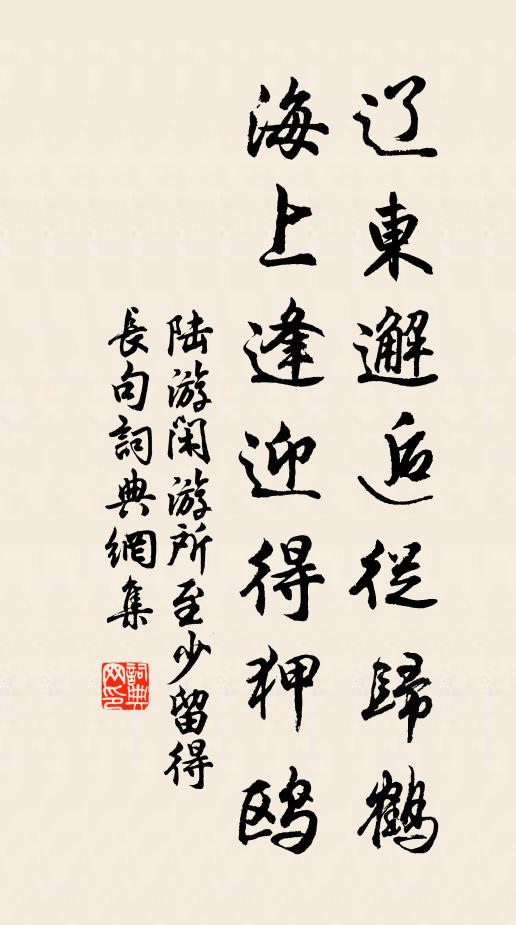 辽東邂逅従歸鶴
海上逢迎得狎鸥
陆游閑游所至少留得
長句詞典網集
詞典
网印